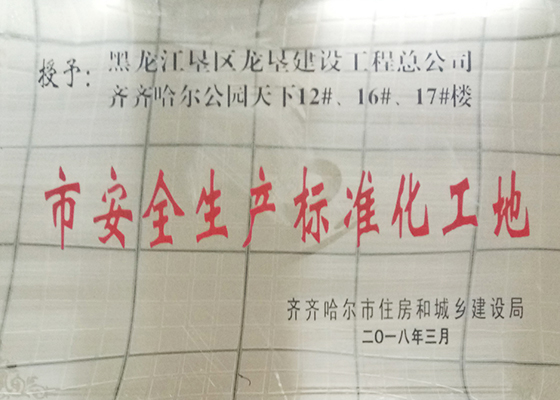 授予：黑龙江垦区龙垦建设工程总公司
齐齐哈尔公园天下12#、16#、17#楼
市安全生产标准化工地
齐齐哈尔市住房和城乡建设局
二〇一八年三月